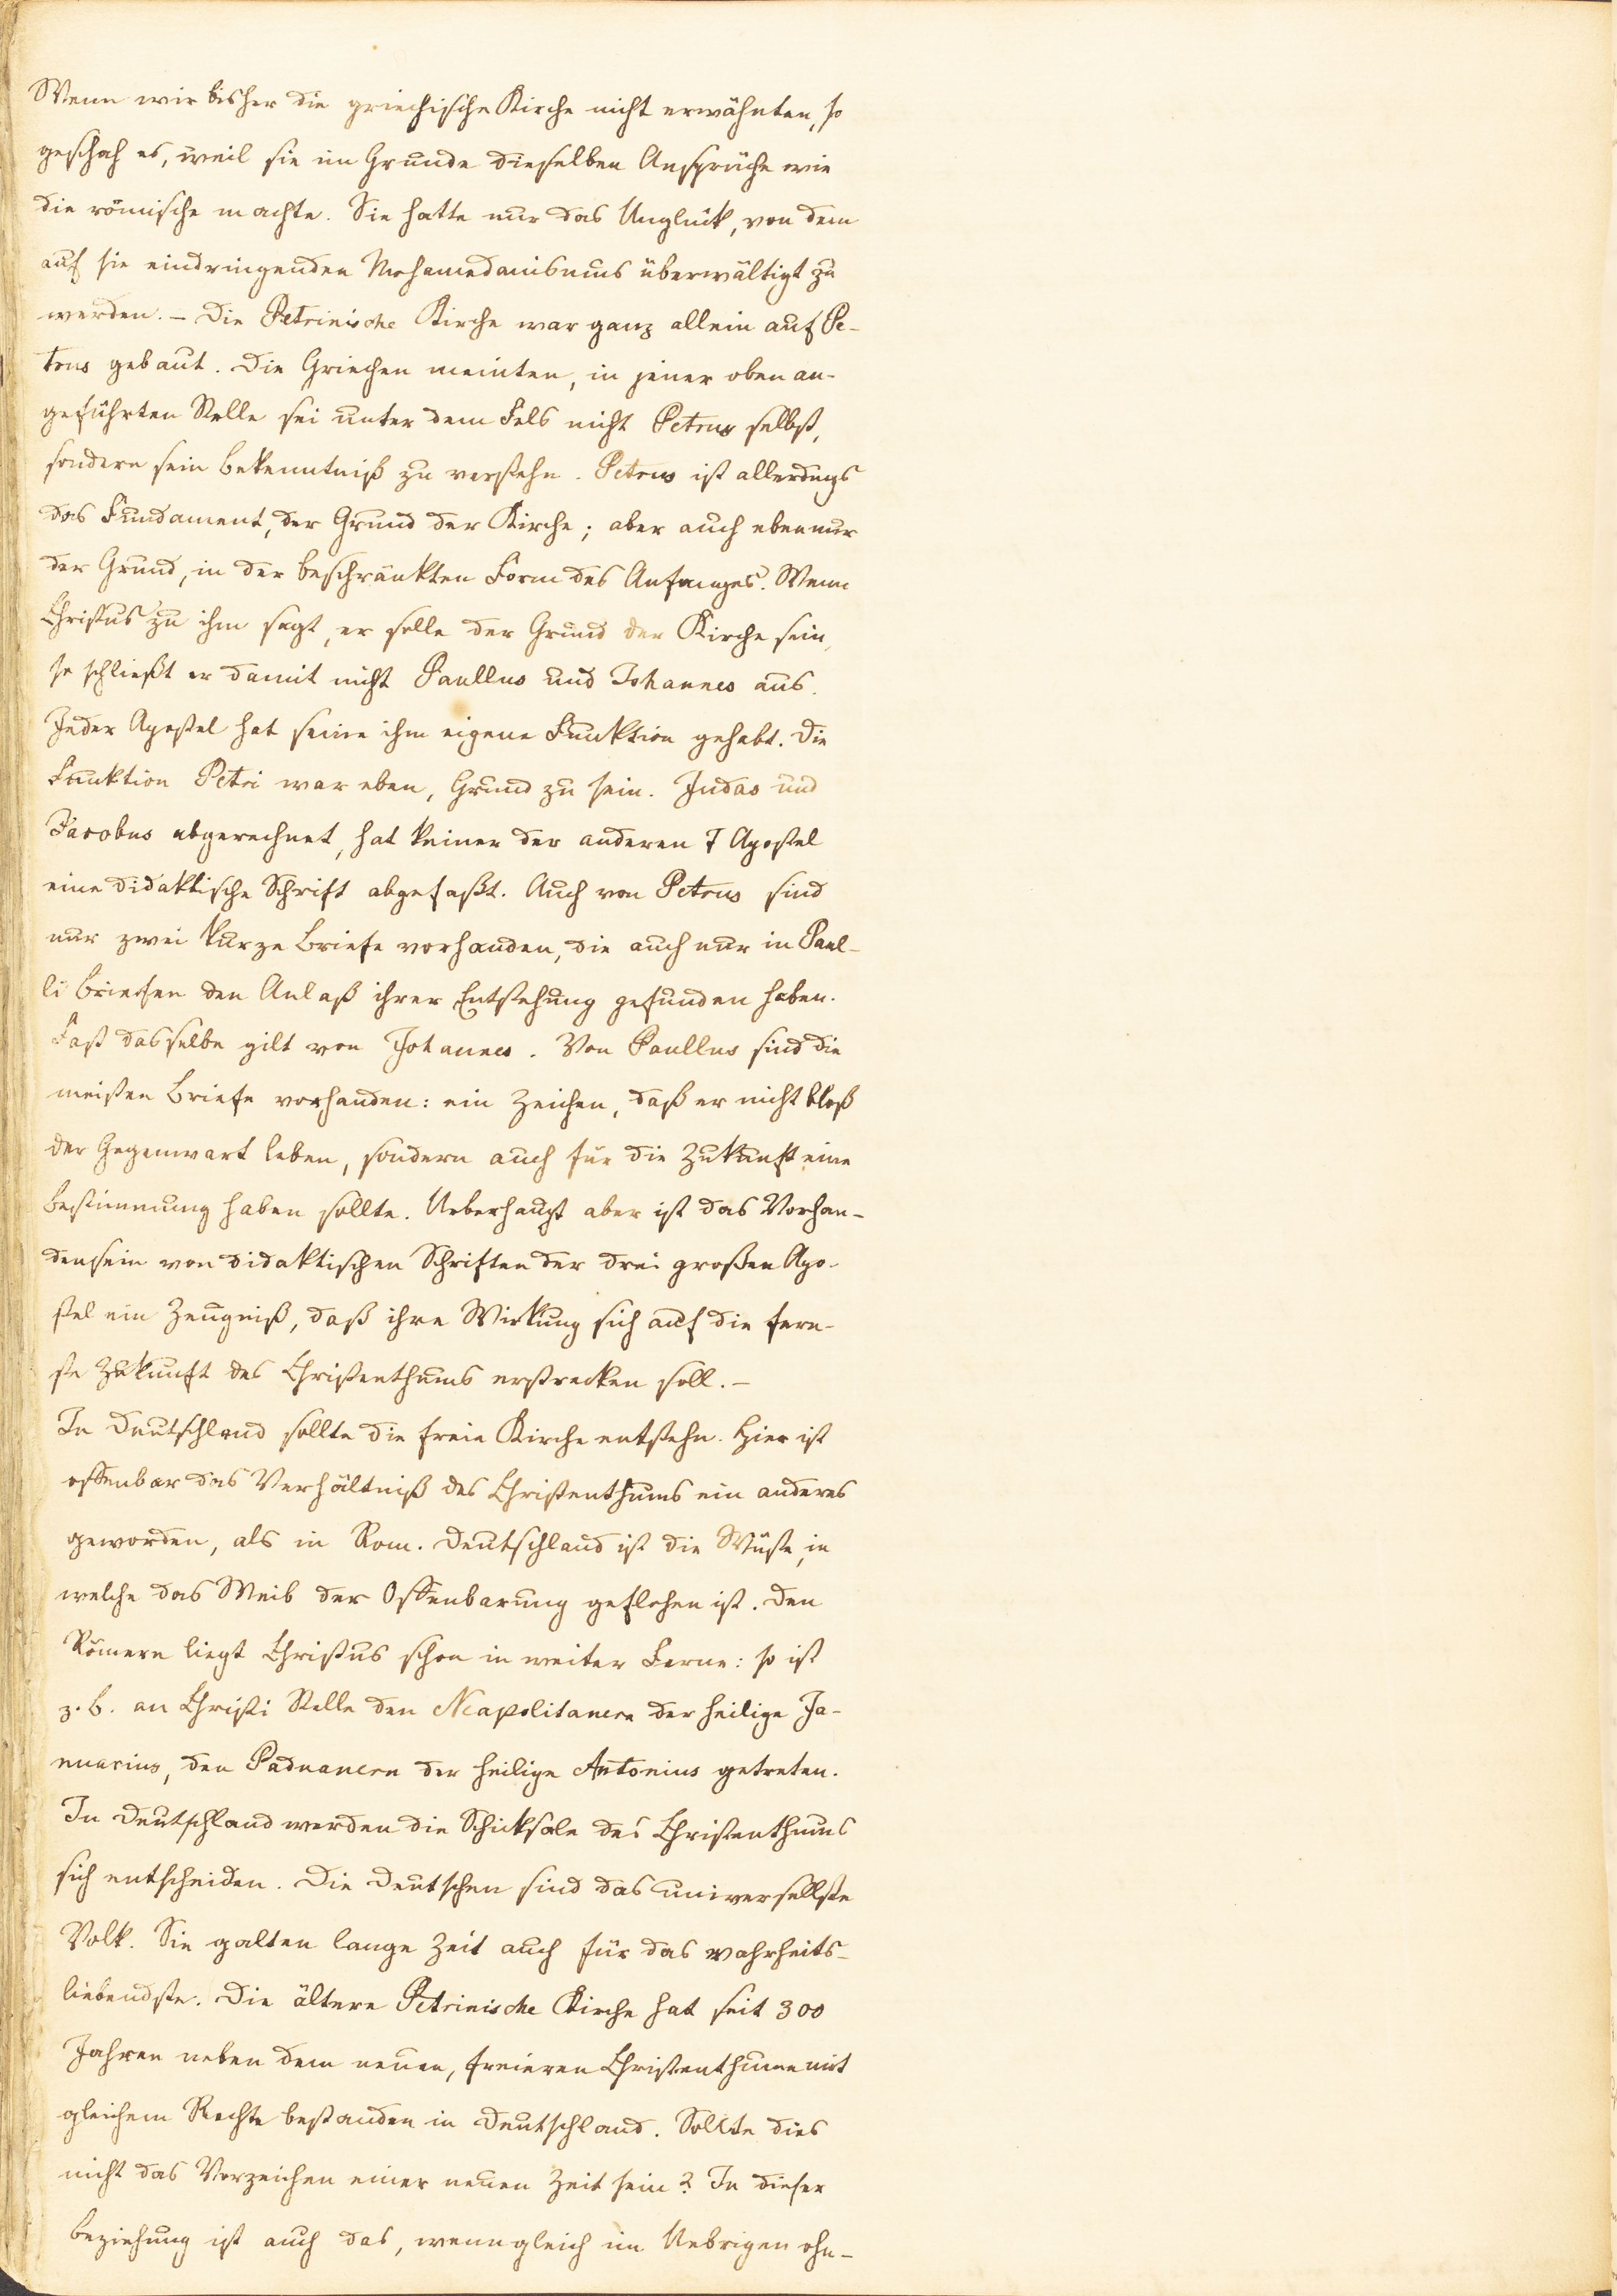 Wenn wir bisher die griechische Kirche nicht erwähnten, so
geschah es, weil sie im Grunde dieselben Ansprüche wie
die römische machte. Sie hatte nur das Unglück, von dem
auf sie eindringenden Mohamedanismus überwältigt zu
werden. – Die Petrinische Kirche war ganz allein auf Pe-
trus gebaut. Die Griechen meinten, in jener oben an-
geführten Stelle sei unter dem Fels nicht Petrus selbst,
sondern sein Bekenntniß zu verstehn. Petrus ist allerdings
das Fundament, der Grund der Kirche; aber auch eben nur
der Grund, in der beschränkten Form des Anfanges. Wenn
Christus zu ihm sagt, er solle der Grund der Kirche sein,
so schließt er damit nicht Paullus und Johannes aus.
Jeder Apostel hat seine ihm eigene Funktion gehabt. Die
Funktion Petri war eben, Grund zu sein. Judas und
Jacobus abgerechnet, hat keiner der anderen 7 Apostel
eine didaktische Schrift abgefaßt. Auch von Petrus sind
nur zwei kurze Briefe vorhanden, die auch nur in Paul-
li Briefen den Anlaß ihrer Entstehung gefunden haben.
Fast dasselbe gilt von Johannes. Von Paullus sind die
meisten Briefe vorhanden: ein Zeichen, daß er nicht bloß
der Gegenwart leben, sondern auch für die Zukunft eine
Bestimmung haben sollte. Ueberhaupt aber ist das Vorhan-
densein von didaktischen Schriften der drei großen Apo-
stel ein Zeugniß, daß ihre Wirkung sich auf die fern-
ste Zukunft des Christenthums erstrecken soll. –
In Deutschland sollte die freie Kirche entstehn. Hier ist
offenbar das Verhältniß des Christenthums ein anderes
geworden, als in Rom. Deutschland ist die Wüste, in
welche das Weib der Offenbarung geflohen ist. Den
Römern liegt Christus schon in weiter Ferne: so ist
z. B. an Christi Stelle den Neapolitanern der heilige Ja-
nuarius, den Paduanern der heilige Antonius getreten.
In Deutschland werden die Schicksale des Christenthums
sich entscheiden. Die Deutschen sind das universellste
Volk. Sie galten lange Zeit auch für das wahrheits-
liebendste. Die ältere Petrinische Kirche hat seit 300
Jahren neben dem neuen, freieren Christenthume mit
gleichem Rechte bestanden in Deutschland. Sollte dies
nicht das Vorzeichen einer neuen Zeit sein? In dieser
Beziehung ist auch das, wenn gleich im Uebrigen ohn-